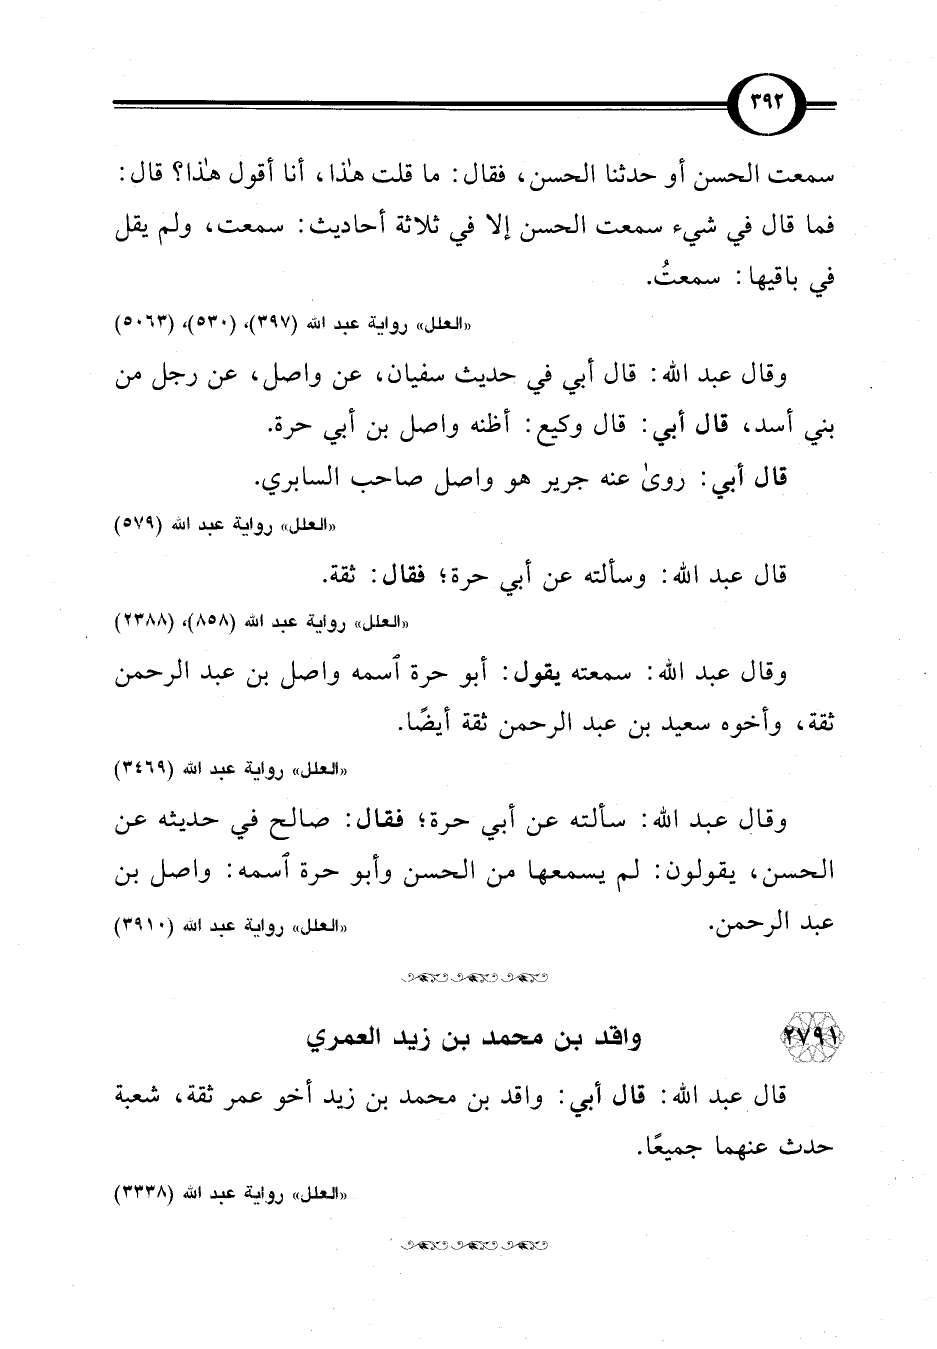 ٣٩٢
سمعت الحسن أو حدثنا الحسن، فقال: ما قلت هذا، أنا أقول هذا؟ قال:
فما قال في شيء سمعت الحسن إلا في ثلاثة أحاديث: سمعت، ولم يقل
في باقيها: سمعتُ.
«العلل» رواية عبد الله (٣٩٧)، (٥٣٠)، (٥٠٦٣)
وقال عبد الله: قال أبي في حديث سفيان، عن واصل، عن رجل من
بني أسد، قال أبي: قال وكيع: أظنه واصل بن أبي حرة.
قال أبي: روىٰ عنه جرير هو واصل صاحب السابري.
«العلل» رواية عبد الله (٥٧٩)
قال عبد الله: وسألته عن أبي حرة؛ فقال: ثقة.
«العلل» رواية عبد الله (٨٥٨)، (٢٣٨٨)
وقال عبد الله: سمعته يقول: أبو حرة ٱسمه واصل بن عبد الرحمن
ثقة، وأخوه سعيد بن عبد الرحمن ثقة أيضًا.
«العلل» رواية عبد الله (٣٤٦٩)
وقال عبد الله: سألته عن أبي حرة؛ فقال: صالح في حديثه عن
الحسن، يقولون: لم يسمعها من الحسن وأبو حرة ٱسمه: واصل بن
عبد الرحمن. «العلل» رواية عبد الله (٣٩١٠)
٢٧٩١ واقد بن محمد بن زيد العمري
قال عبد الله: قال أبي: واقد بن محمد بن زيد أخو عمر ثقة، شعبة
حدث عنهما جميعًا.
«العلل» رواية عبد الله (٣٣٣٨)